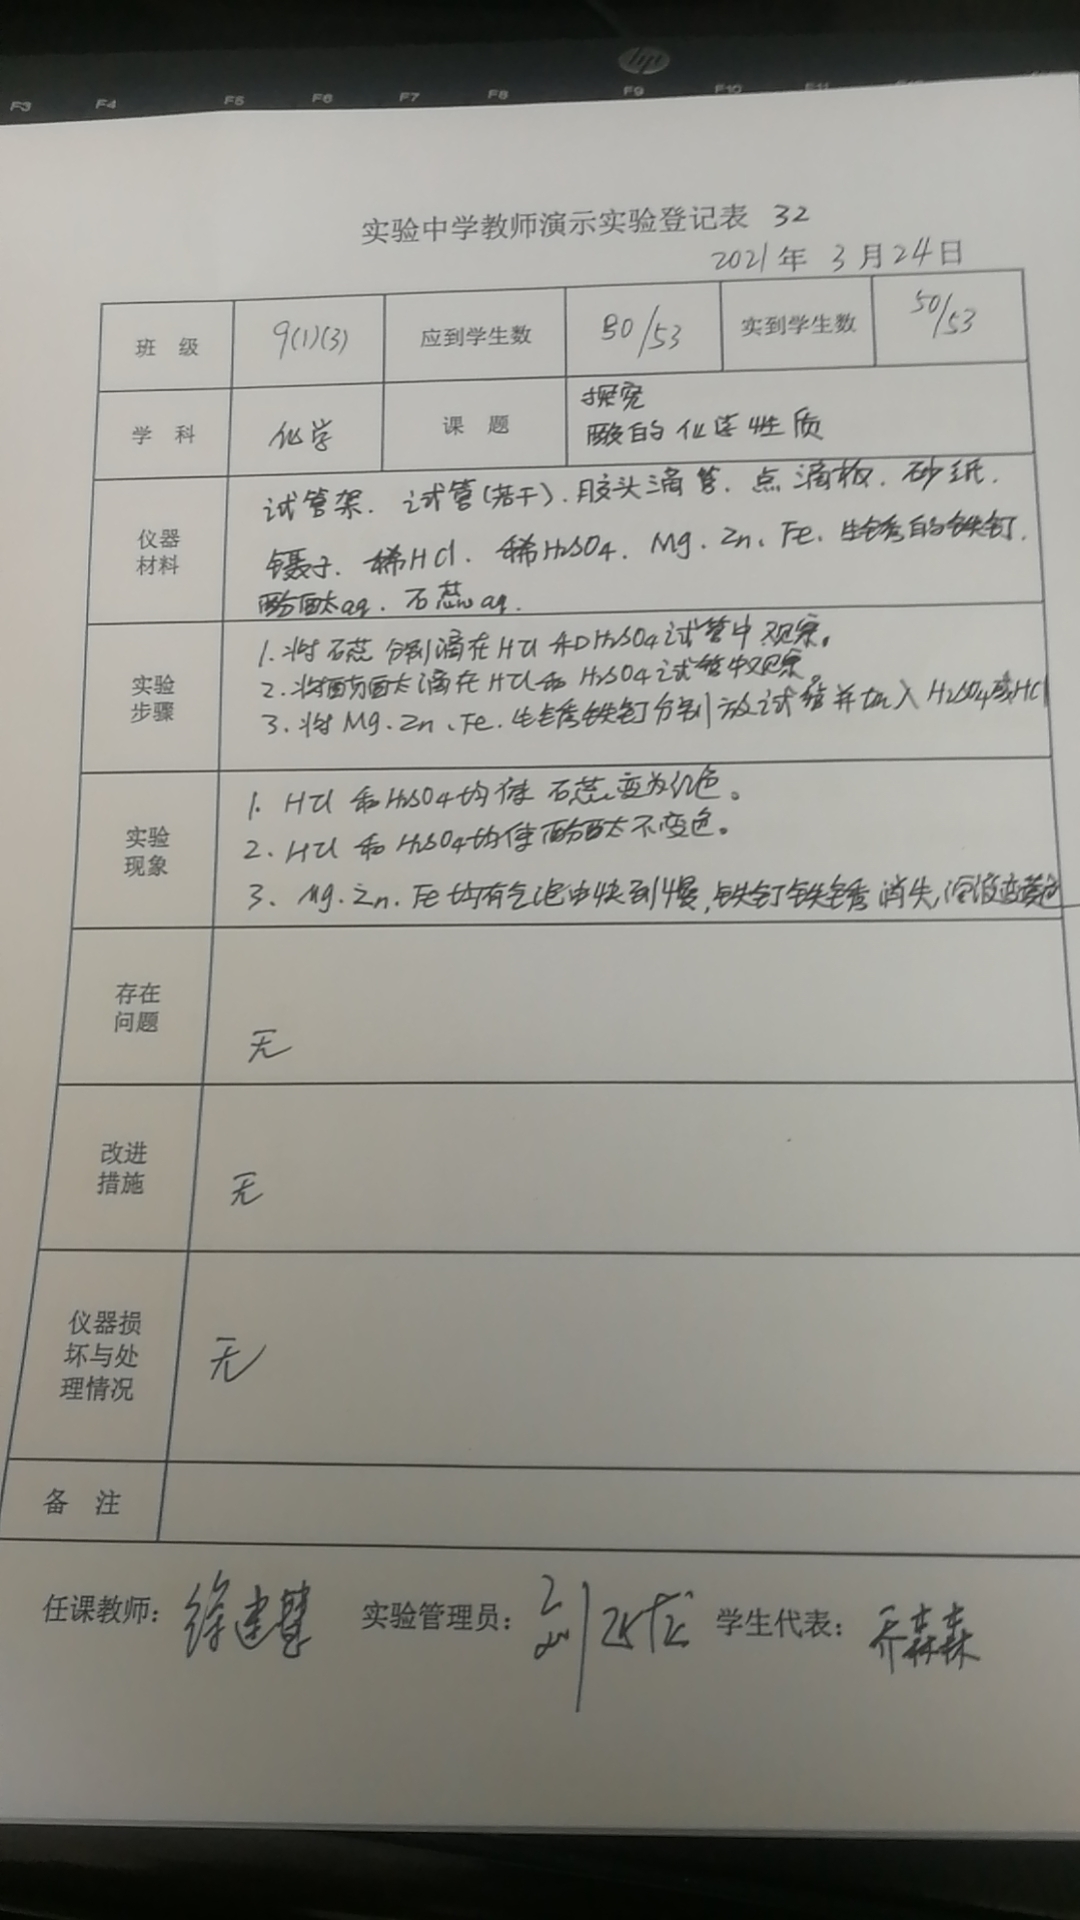 hp
F3 F4 F5 F6 F7 F8 F9 F10 F11
实验中学教师演示实验登记表 32
2021年 3月24日
班 级 9(1)(3) 应到学生数 50/53 实到学生数 50/53
学 科 化学 课 题 探究
酸的化学性质
仪器
材料
试管架、试管(若干)、胶头滴管、点滴板、砂纸、
镊子、稀HCl、稀H₂SO₄、Mg、Zn、Fe、生锈的铁钉、
酚酞aq、石蕊aq、
实验
步骤
1.将石蕊分别滴在HCl和H₂SO₄试管中观察。
2.将酚酞滴在HCl和H₂SO₄试管中观察。
3.将Mg、Zn、Fe、生锈铁钉分别放试管并加入H₂SO₄或HCl
实验
现象
1. HCl和H₂SO₄均使石蕊变为红色。
2. HCl和H₂SO₄均使酚酞不变色。
3. Mg、Zn、Fe均有气泡由快到慢,铁钉铁锈消失,溶液变黄色
存在
问题
无
改进
措施
无
仪器损
坏与处
理情况
无
备 注
任课教师: 徐建慧 实验管理员: 刘 学生代表: 乔森森